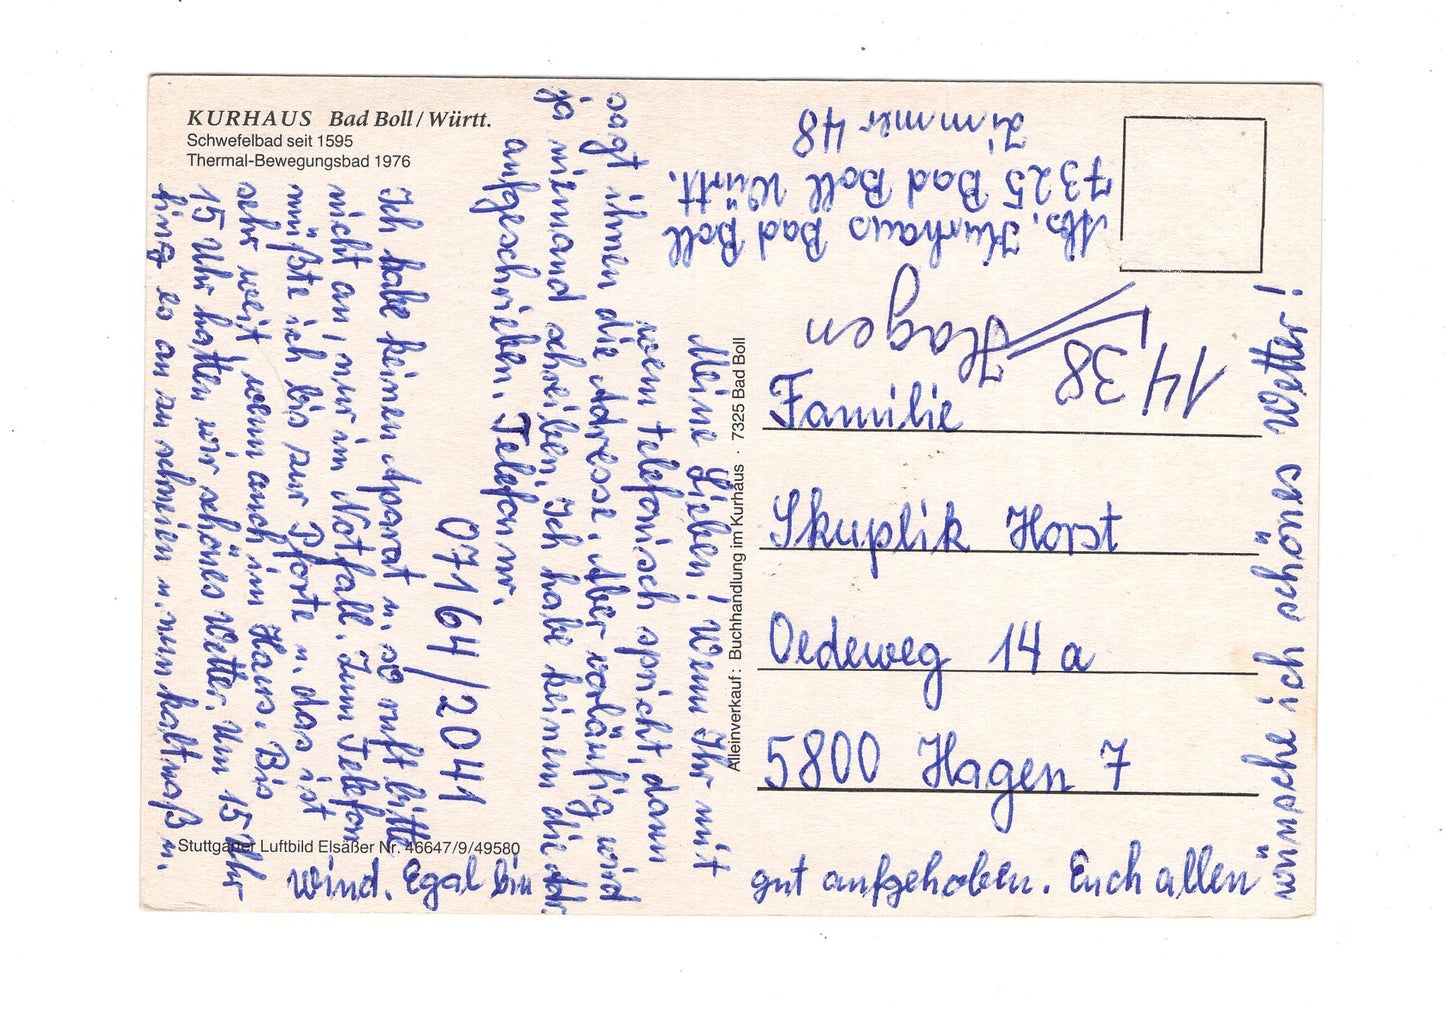 KURHAUS Bad Boll / Württ.
Schwefelbad seit 1595
Thermal-Bewegungsbad 1976
Meine Lieben! Wenn Ihr mit
wem telefonisch spricht, dann
sagt ihnen die Adresse. Aber vorläufig wird
ja niemand schreiben. Ich habe keinem die Adr.
aufgeschrieben. Telefonnr.
07164/2041
Ich habe keinen Aparat u. so ruft bitte
nicht an, nur im Notfall. Zum Telefon
müßte ich bis zur Pforte u. das ist
sehr weit, wenn auch im Haus. Bis
15 Uhr hatten wir schönes Wetter. Um 15 Uhr
fing es an zu schneien u. nun kalt naß u.
Wind. Egal bin
gut aufgehoben. Euch allen
wünsche ich schönes Wetter!
Stuttgarter Luftbild Elsäßer Nr. 46647/9/49580
Alleinverkauf: Buchhandlung im Kurhaus · 7325 Bad Boll
Abs. Kurhaus Bad Boll
7325 Bad Boll Württ.
Zimmer 48
14,38 Hagen
Familie
Skuplik Horst
Oedeweg 14 a
5800 Hagen 7